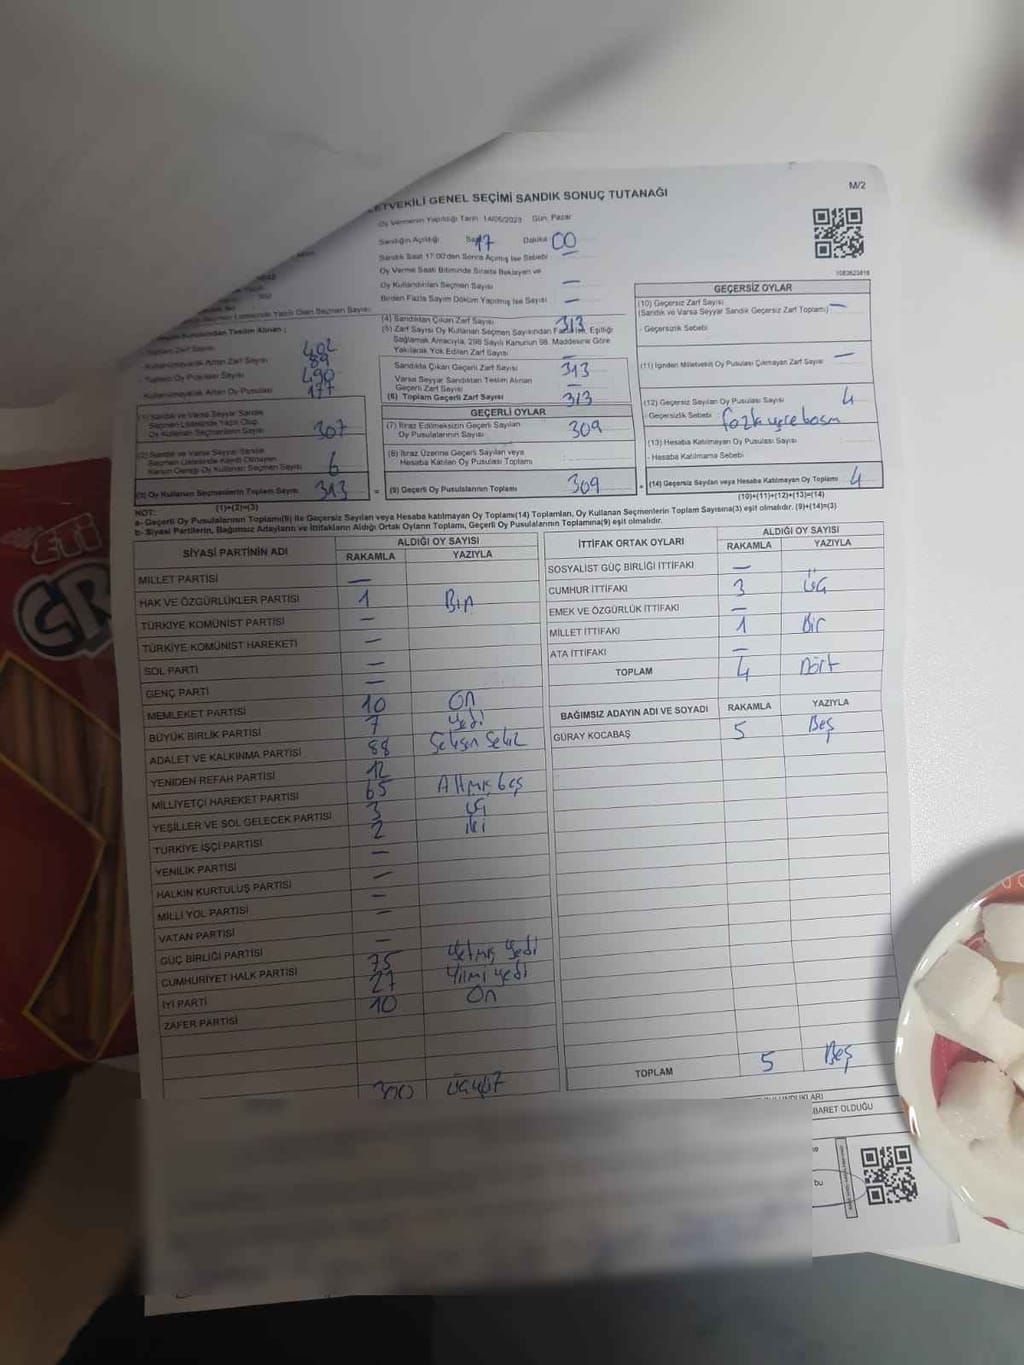 M/2
ETVEKİLİ GENEL SEÇİMİ SANDIK SONUÇ TUTANAĞI
Oy Vermenin Yapıldığı Tarih 14/05/2023 Gün: Pazar
Sandığın Açıldığı Saat 17 Dakika 00
Sandık Saat 17:00'den Sonra Açılmış İse Sebebi
Oy Verme Saati Bitiminde Sırada Bekleyen ve
Oy Kullandırılan Seçmen Sayısı —
Birden Fazla Sayım Döküm Yapılmış İse Sayısı —
(4) Sandıktan Çıkan Zarf Sayısı 313
(5) Zarf Sayısı Oy Kullanan Seçmen Sayısından Fazla ise, Eşitliği
Sağlamak Amacıyla, 298 Sayılı Kanunun 98. Maddesine Göre
Yakılarak Yok Edilen Zarf Sayısı —
Sandıkta Çıkan Geçerli Zarf Sayısı 313
Varsa Seyyar Sandıktan Teslim Alınan
Geçerli Zarf Sayısı —
(6) Toplam Geçerli Zarf Sayısı 313
Seçmen Listesinde Yazılı Olan Seçmen Sayısı:
Teslim Alınan ;
Zarf Sayısı 402
Kullanılmayarak Artan Zarf Sayısı 89
Toplam Oy Pusulası Sayısı 490
Kullanılmayarak Artan Oy Pusulası 177
(1) Sandık ve Varsa Seyyar Sandık
Seçmen Listesinde Yazılı Olup,
Oy Kullanan Seçmenlerin Sayısı 307
(2) Sandık ve Varsa Seyyar Sandık
Seçmen Listesinde Kaydı Olmayan
Kanun Gereği Oy Kullanan Seçmen Sayısı 6
(3) Oy Kullanan Seçmenlerin Toplam Sayısı 313
(1)+(2)=(3)
=
GEÇERLİ OYLAR
(7) İtiraz Edilmeksizin Geçerli Sayılan
Oy Pusulalarının Sayısı 309
(8) İtiraz Üzerine Geçerli Sayılan veya
Hesaba Katılan Oy Pusulası Toplamı
(9) Geçerli Oy Pusulalarının Toplamı 309
+
GEÇERSİZ OYLAR
(10) Geçersiz Zarf Sayısı
(Sandık ve Varsa Seyyar Sandık Geçersiz Zarf Toplamı) —
- Geçersizlik Sebebi
(11) İçinden Milletvekili Oy Pusulası Çıkmayan Zarf Sayısı —
(12) Geçersiz Sayılan Oy Pusulası Sayısı 4
- Geçersizlik Sebebi
(13) Hesaba Katılmayan Oy Pusulası Sayısı
- Hesaba Katılmama Sebebi
(14) Geçersiz Sayılan veya Hesaba Katılmayan Oy Toplamı 4
(10)+(11)+(12)+(13)=(14)
NOT:
a- Geçerli Oy Pusulalarının Toplamı(9) ile Geçersiz Sayılan veya Hesaba katılmayan Oy Toplamı(14) Toplamları, Oy Kullanan Seçmenlerin Toplam Sayısına(3) eşit olmalıdır. (9)+(14)=(3)
b- Siyasi Partilerin, Bağımsız Adayların ve İttifakların Aldığı Ortak Oyların Toplamı, Geçerli Oy Pusulalarının Toplamına(9) eşit olmalıdır.
SİYASİ PARTİNİN ADI ALDIĞI OY SAYISI
RAKAMLA YAZIYLA
MİLLET PARTİSİ —
HAK VE ÖZGÜRLÜKLER PARTİSİ 1 Bir
TÜRKİYE KOMÜNİST PARTİSİ —
TÜRKİYE KOMÜNİST HAREKETİ —
SOL PARTİ —
GENÇ PARTİ —
MEMLEKET PARTİSİ 10 on
BÜYÜK BİRLİK PARTİSİ 7 yedi
ADALET VE KALKINMA PARTİSİ 88 Seksen Sekiz
YENİDEN REFAH PARTİSİ 12
MİLLİYETÇİ HAREKET PARTİSİ 65 Altmış beş
YEŞİLLER VE SOL GELECEK PARTİSİ 3 üç
TÜRKİYE İŞÇİ PARTİSİ 2 iki
YENİLİK PARTİSİ —
HALKIN KURTULUŞ PARTİSİ —
MİLLİ YOL PARTİSİ —
VATAN PARTİSİ —
GÜÇ BİRLİĞİ PARTİSİ —
CUMHURİYET HALK PARTİSİ 75 yetmiş yedi
İYİ PARTİ 27 yirmi yedi
ZAFER PARTİSİ 10 on
300 üçyüz
İTTİFAK ORTAK OYLARI ALDIĞI OY SAYISI
RAKAMLA YAZIYLA
SOSYALİST GÜÇ BİRLİĞİ İTTİFAKI —
CUMHUR İTTİFAKI 3 üç
EMEK VE ÖZGÜRLÜK İTTİFAKI —
MİLLET İTTİFAKI 1 Bir
ATA İTTİFAKI —
TOPLAM 4 Dört
BAĞIMSIZ ADAYIN ADI VE SOYADI RAKAMLA YAZIYLA
GÜRAY KOCABAŞ 5 Beş
TOPLAM 5 Beş
BARET OLDUĞU
bu
ETİ
CR